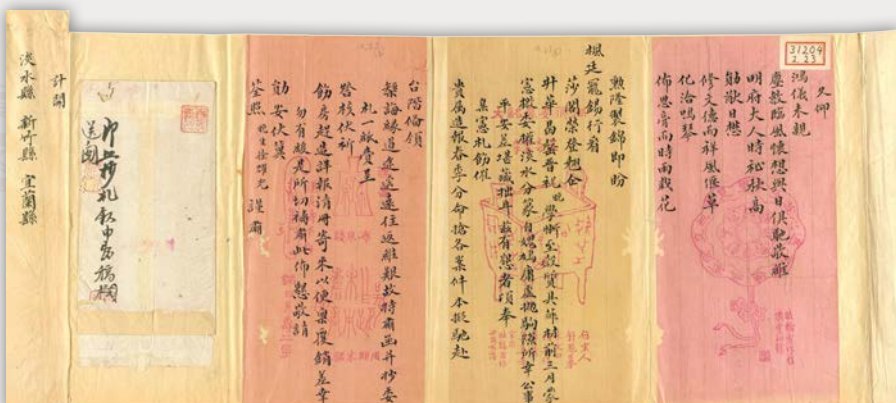 31204
2.23
久仰
鴻儀未親
麈教臨風懷想與日俱馳敬維
明府大人時祉秋高
勛猷日懋
修文德而祥風偃草
化洽鳴琴
佈恩膏而時雨栽花
勲隆製錦即盼
楓廷寵錫行看
莎閣榮登翹企
升華昌罄晉祝晚學術空踈質具篩材前三月蒙
憲檄委權淡水分篆自媿鳩庸虛拋駒隙所幸公事
平安差堪藏拙耳茲有懇者頃奉
臬憲札飭催
貴属造報春季分命搶各案件本擬馳赴
台階倫領
榘誨緣道途遙遠往返維艱故特肅函并抄委
札一紙賫呈
詧核伏祈
飭房趕造詳報清冊寄來以便稟覆銷差幸
勿有緩是所切禱肅此佈懇敬請
勛安伏冀
荃照 晚生徐耀光 謹肅
計開
淡水縣 新竹縣 宜蘭縣